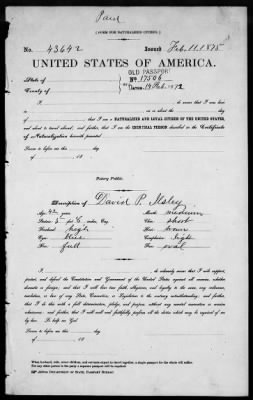 Paid
(FORM FOR NATURALIZED CITIZEN.)
No. 43642 Issued Feb. 11. 1875
UNITED STATES OF AMERICA.
OLD PASSPORT
State of No. 17506
County of Dated 14 Feb. 1872
I, do swear that I was born
in on or about the day
of ; that I am a NATURALIZED AND LOYAL CITIZEN OF THE UNITED STATES,
and about to travel abroad; and further, that I am the IDENTICAL PERSON described in the Certificate
of Naturalization herewith presented.
Sworn to before me this day
of , 18
Notary Public.
Description of David P. Ilsley
Age, 42 years Mouth, medium
Stature, 5 feet 6 inches, Eng. Chin, short
Forehead, high Hair, brown
Eyes, blue Complexion, light
Nose, full Face, oval
I, do solemnly swear that I will support,
protect, and defend the Constitution and Government of the United States against all enemies, whether
domestic or foreign; and that I will bear true faith, allegiance, and loyalty to the same, any ordinance,
resolution, or law of any State, Convention, or Legislature to the contrary notwithstanding; and further,
that I do this with a full determination, pledge, and purpose, without any mental reservation or evasion
whatsoever; and further, that I will well and faithfully perform all the duties which may be required of me
by law. So help me God.
Sworn to before me this day
of , 18
When husband, wife, minor children, and servants expect to travel together, a single passport for the whole will suffice.
For any other person in the party a separate passport will be required.